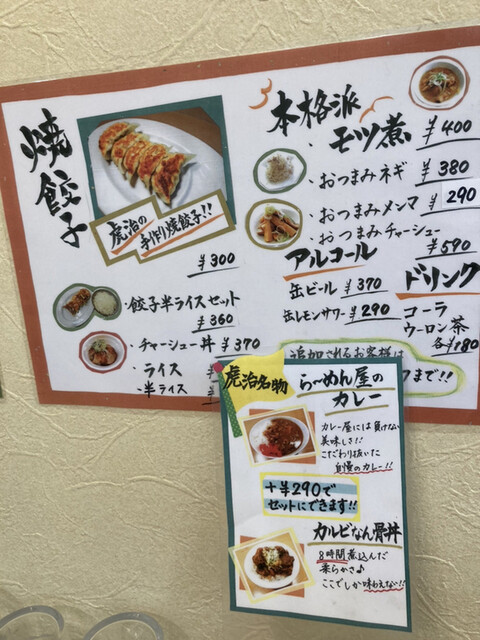 焼餃子
虎治の
手作り焼餃子!!
¥300
・餃子半ライスセット
¥360
・チャーシュー丼 ¥370
・ライス ¥
・半ライス ¥
本格派
・モツ煮 ¥400
・おつまみネギ ¥380
・おつまみメンマ ¥290
・おつまみチャーシュー
¥590
アルコール
缶ビール ¥370
缶レモンサワー ¥290
ドリンク
コーラ
ウーロン茶
各¥180
追加されるお客様は
まで!!
虎治名物
らーめん屋の
カレー
カレー屋には負けない
美味しさだ
こだわり抜いた
自慢のカレー!!
+¥290で
セットにできます!!
カルビなん骨丼
8時間煮込んだ
柔らかさ♪
ここでしか味わえない!!